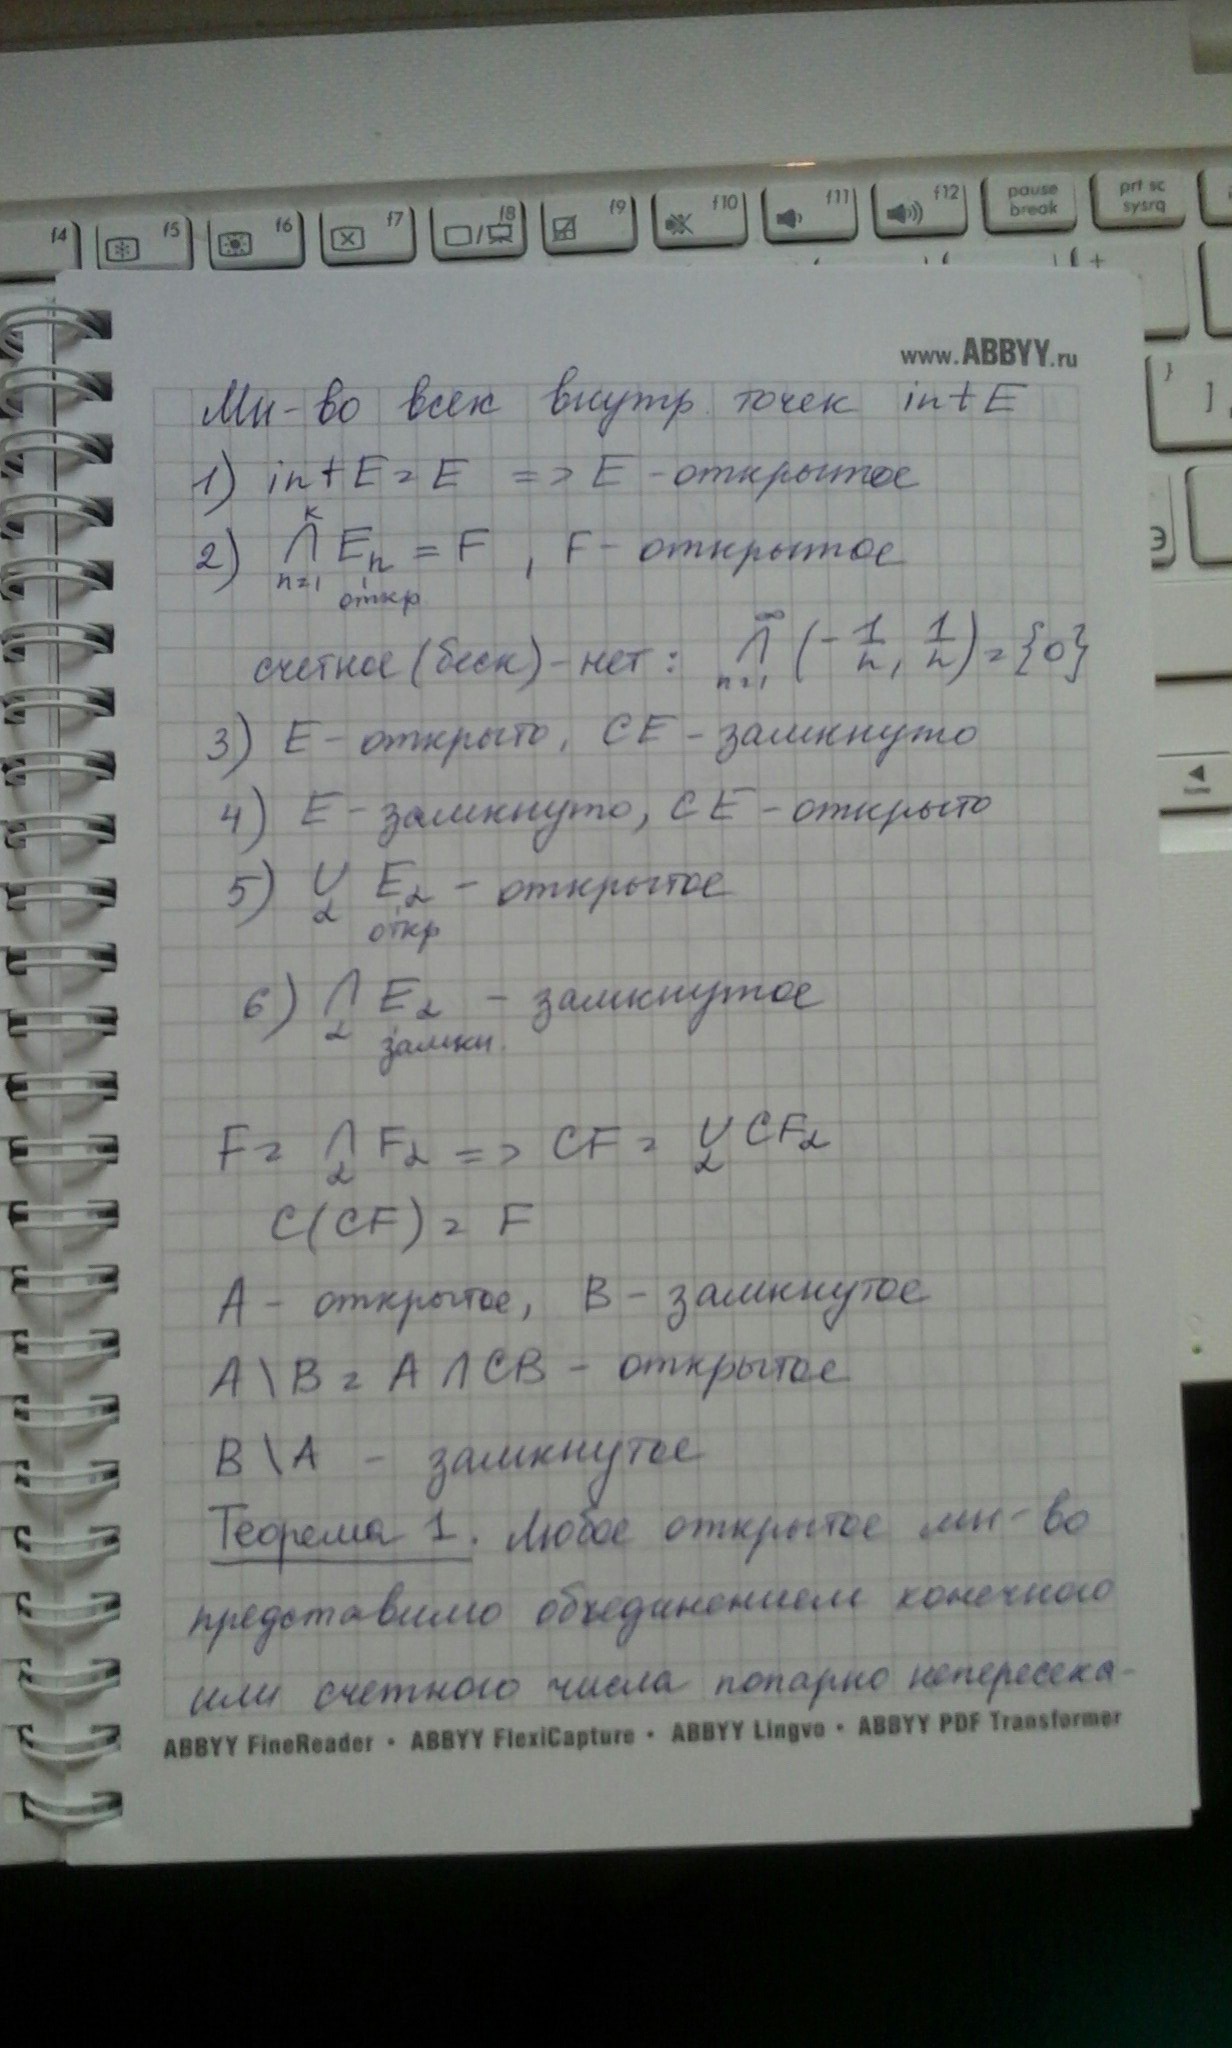 f4 f5 f6 f7 f8 f9 f10 f11 f12 pause break prt sc sysrq
www.ABBYY.ru
Мн-во всех внутр. точек int E
1) int E = E => E - открытое
2) ⋂ₙ₌₁ᵏ Eₙ = F , F - открытое
откр.
счетное (беск) - нет: ⋂ₙ₌₁^∞ (-1/n, 1/n) = {0}
3) E - открыто, CE - замкнуто
4) E - замкнуто, CE - открыто
5) ⋃_α E_α - открытое
откр
6) ⋂_α E_α - замкнутое
замкн.
F = ⋂_α F_α => CF = ⋃_α CF_α
C(CF) = F
A - открытое, B - замкнутое
A \ B = A ∩ CB - открытое
B \ A - замкнутое
Теорема 1. Любое открытое мн-во
представимо объединением конечного
или счетного числа попарно непересека-
ABBYY FineReader • ABBYY FlexiCapture • ABBYY Lingvo • ABBYY PDF Transformer